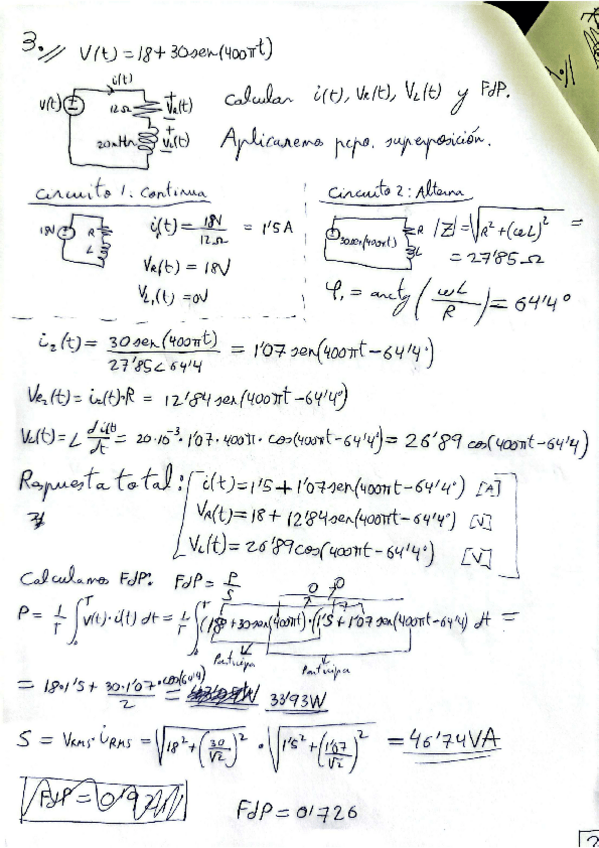 3.// V(t) = 18 + 30 sen(400πt)
i(t)
V(t) 12Ω VR(t)
20mHn VL(t)
Calcular i(t), VR(t), VL(t) y FdP.
Aplicaremos pcpo. superposición.
Circuito 1: Continua
18V R L
i1(t) = 18V/12Ω = 1'5 A
VR1(t) = 18V
VL1(t) = 0V
Circuito 2: Alterna
30sen(400πt) R L
|Z| = √(R² + (ωL)²) =
= 27'85 Ω
φ1 = arctg (ωL/R) = 64'4°
i2(t) = 30 sen(400πt)/27'85∠64'4 = 1'07 sen(400πt - 64'4°)
VR2(t) = i2(t)·R = 12'84 sen(400πt - 64'4°)
VL(t) = L di(t)/dt = 20·10⁻³·1'07·400π·cos(400πt - 64'4°) = 26'89 cos(400πt - 64'4)
Respuesta total: i(t) = 1'5 + 1'07 sen(400πt - 64'4°) [A]
VR(t) = 18 + 12'84 sen(400πt - 64'4°) [V]
VL(t) = 26'89 cos(400πt - 64'4°) [V]
Calculamos FdP: FdP = P/S
0 0
P = 1/T ∫₀ᵀ V(t)·i(t) dt = 1/T ∫₀ᵀ (18 + 30 sen(400πt))·(1'5 + 1'07 sen(400πt - 64'4) dt =
Participa Participa
= 18·1'5 + 30·1'07·cos(64'4)/2 = 33'93W
S = VRMS·iRMS = √(18² + (30/√2)²) · √(1'5² + (1'07/√2)²) = 46'74 VA
FdP = 0'9
FdP = 0'726
2